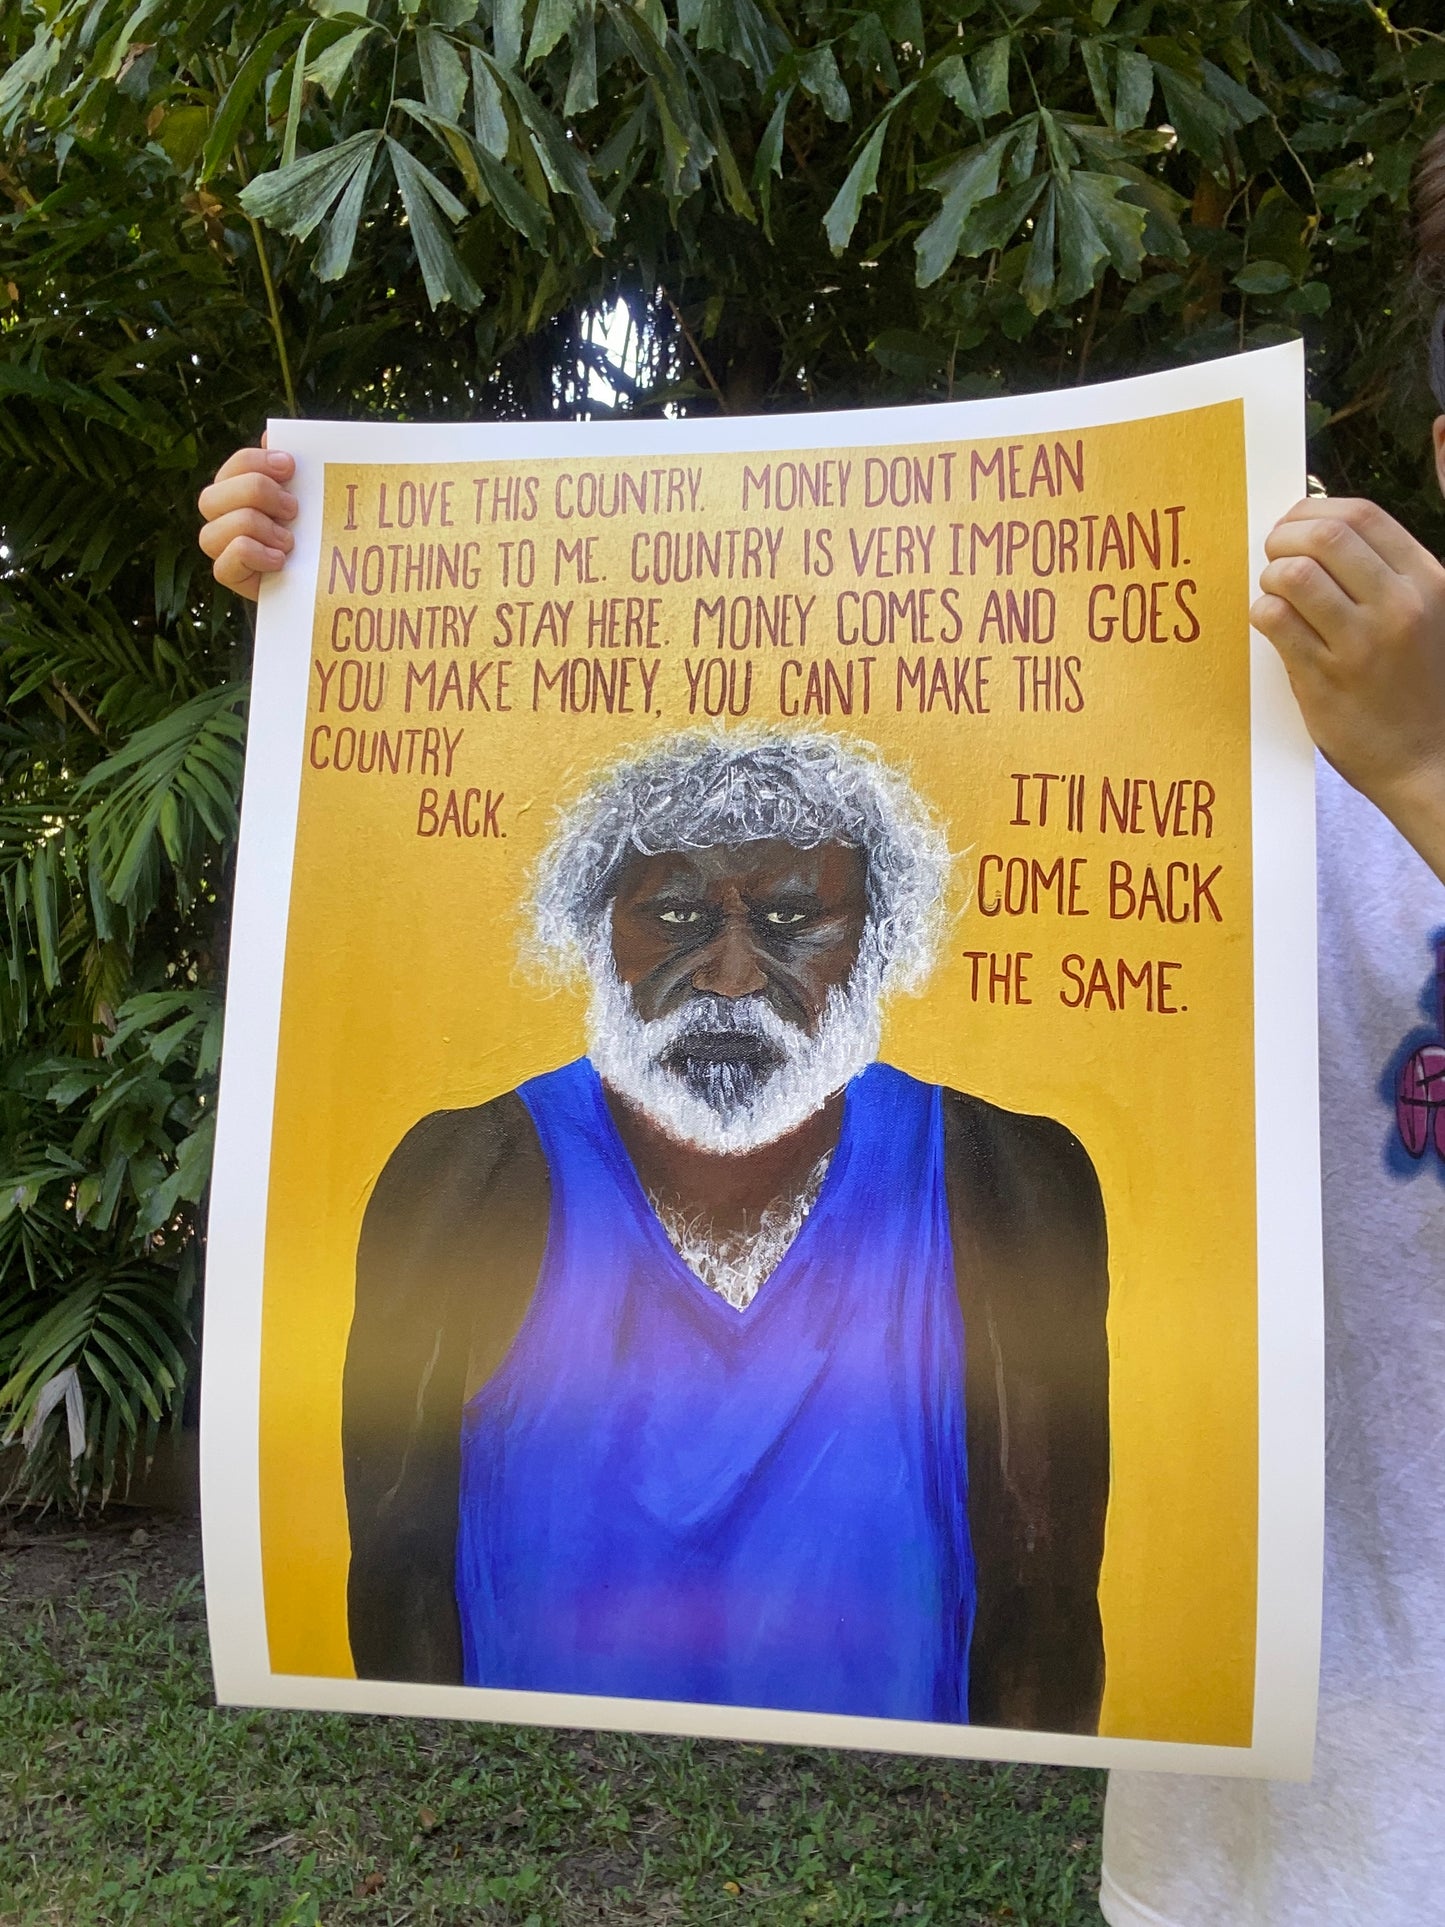 I LOVE THIS COUNTRY. MONEY DONT MEAN
NOTHING TO ME. COUNTRY IS VERY IMPORTANT.
COUNTRY STAY HERE. MONEY COMES AND GOES
YOU MAKE MONEY, YOU CANT MAKE THIS
COUNTRY
BACK.
IT'll NEVER
COME BACK
THE SAME.